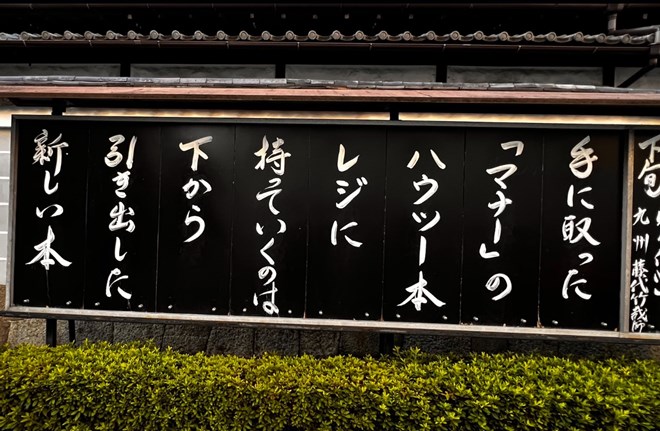 下旬
九州 藤代
手に取った
「マナー」の
ハウツー本
レジに
持っていくのは
下から
引き出した
新しい本